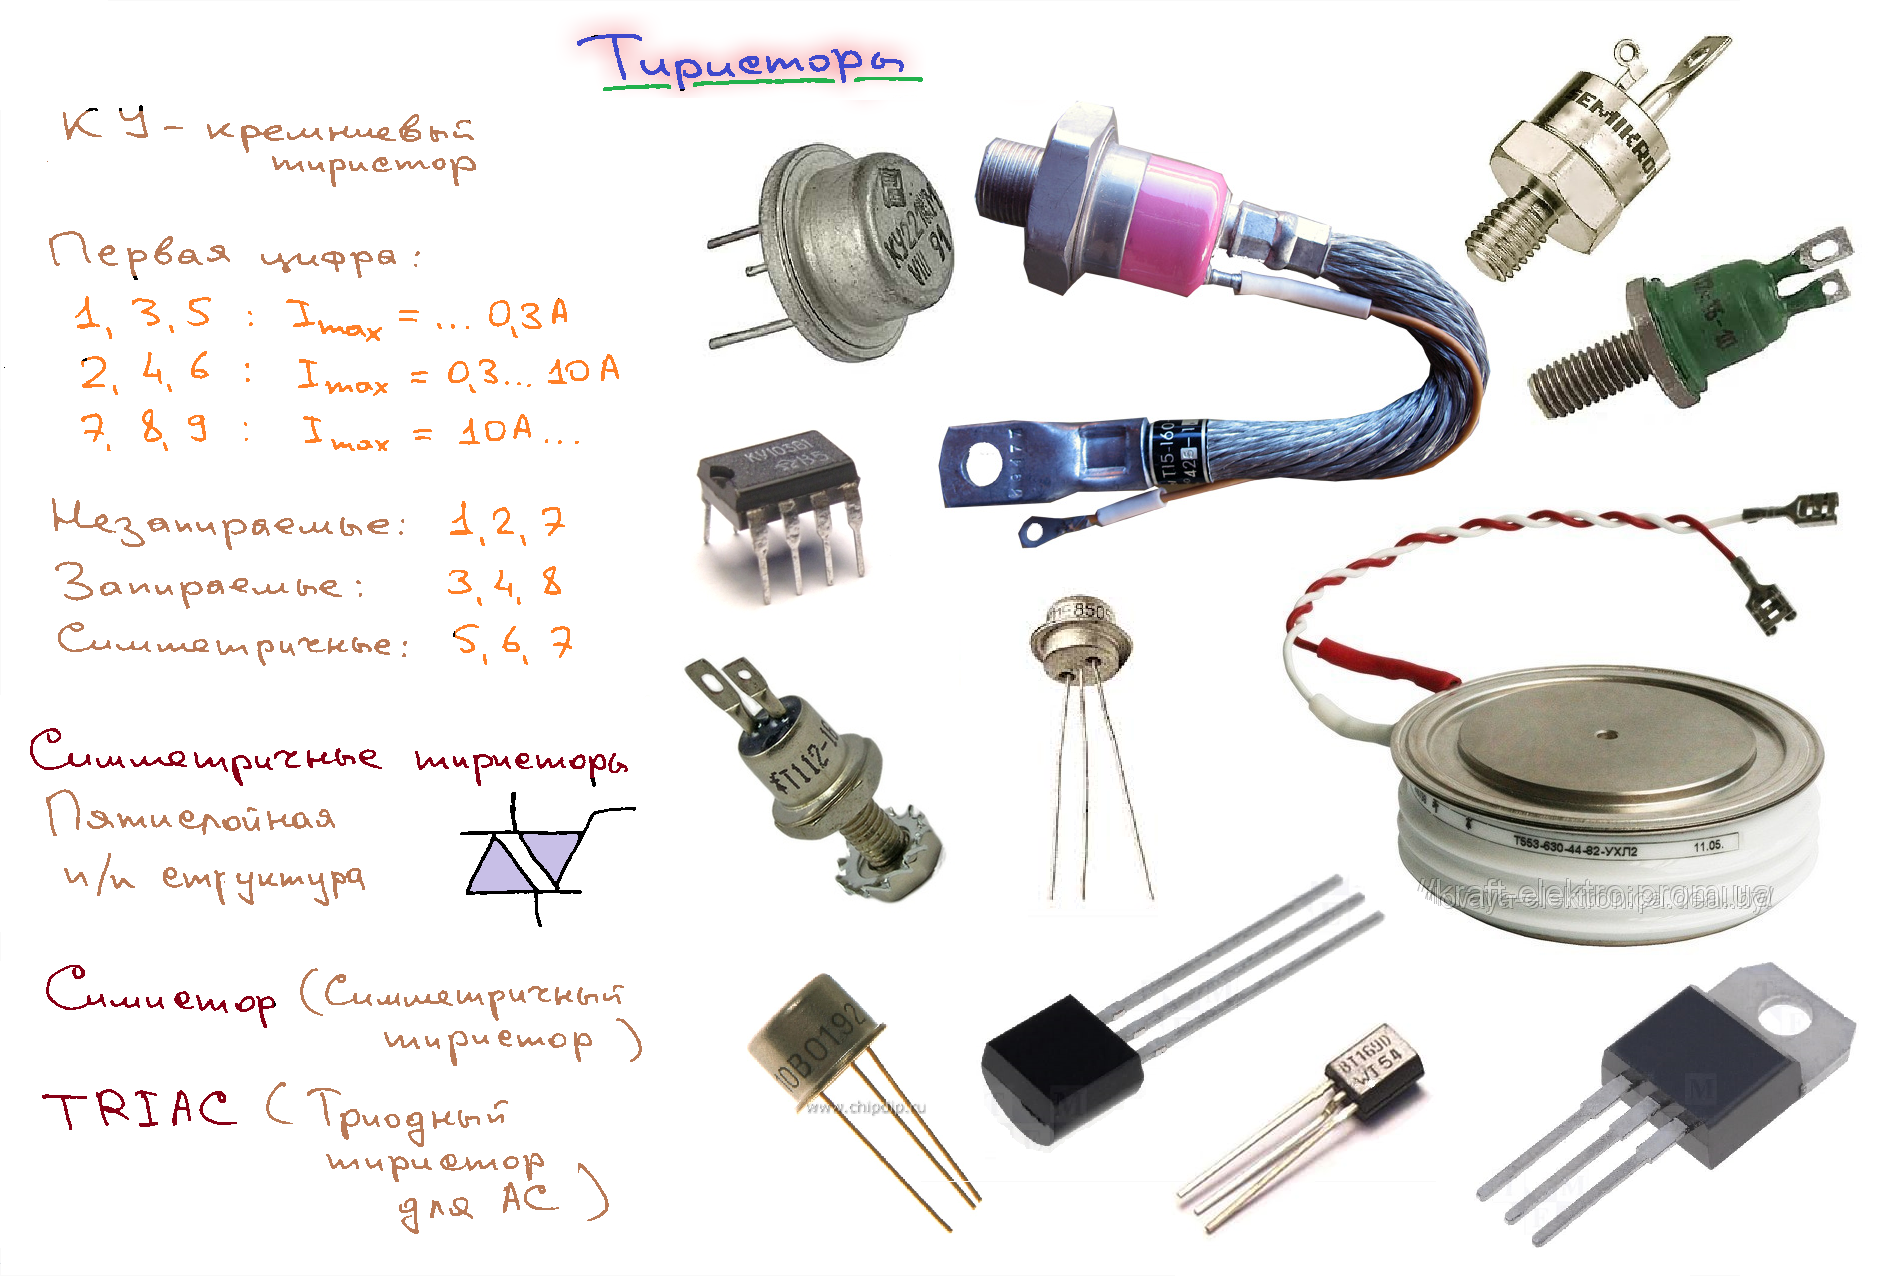 Тиристоры
КУ - кремниевый
тиристор
Первая цифра:
1, 3, 5 : Imax = ... 0,3А
2, 4, 6 : Imax = 0,3... 10А
7, 8, 9 : Imax = 10А...
Незапираемые: 1, 2, 7
Запираемые: 3, 4, 8
Симметричные: 5, 6, 7
Симметричные тиристоры
Пятислойная
п/п структура
Симистор (Симметричный
тиристор)
TRIAC (Триодный
тиристор
для АС)
SEMIKRON
91
КУ103В1
Т112-1
Т553-630-44-82-УХЛ2 11.05.
www.chipdip.ru
BT169D